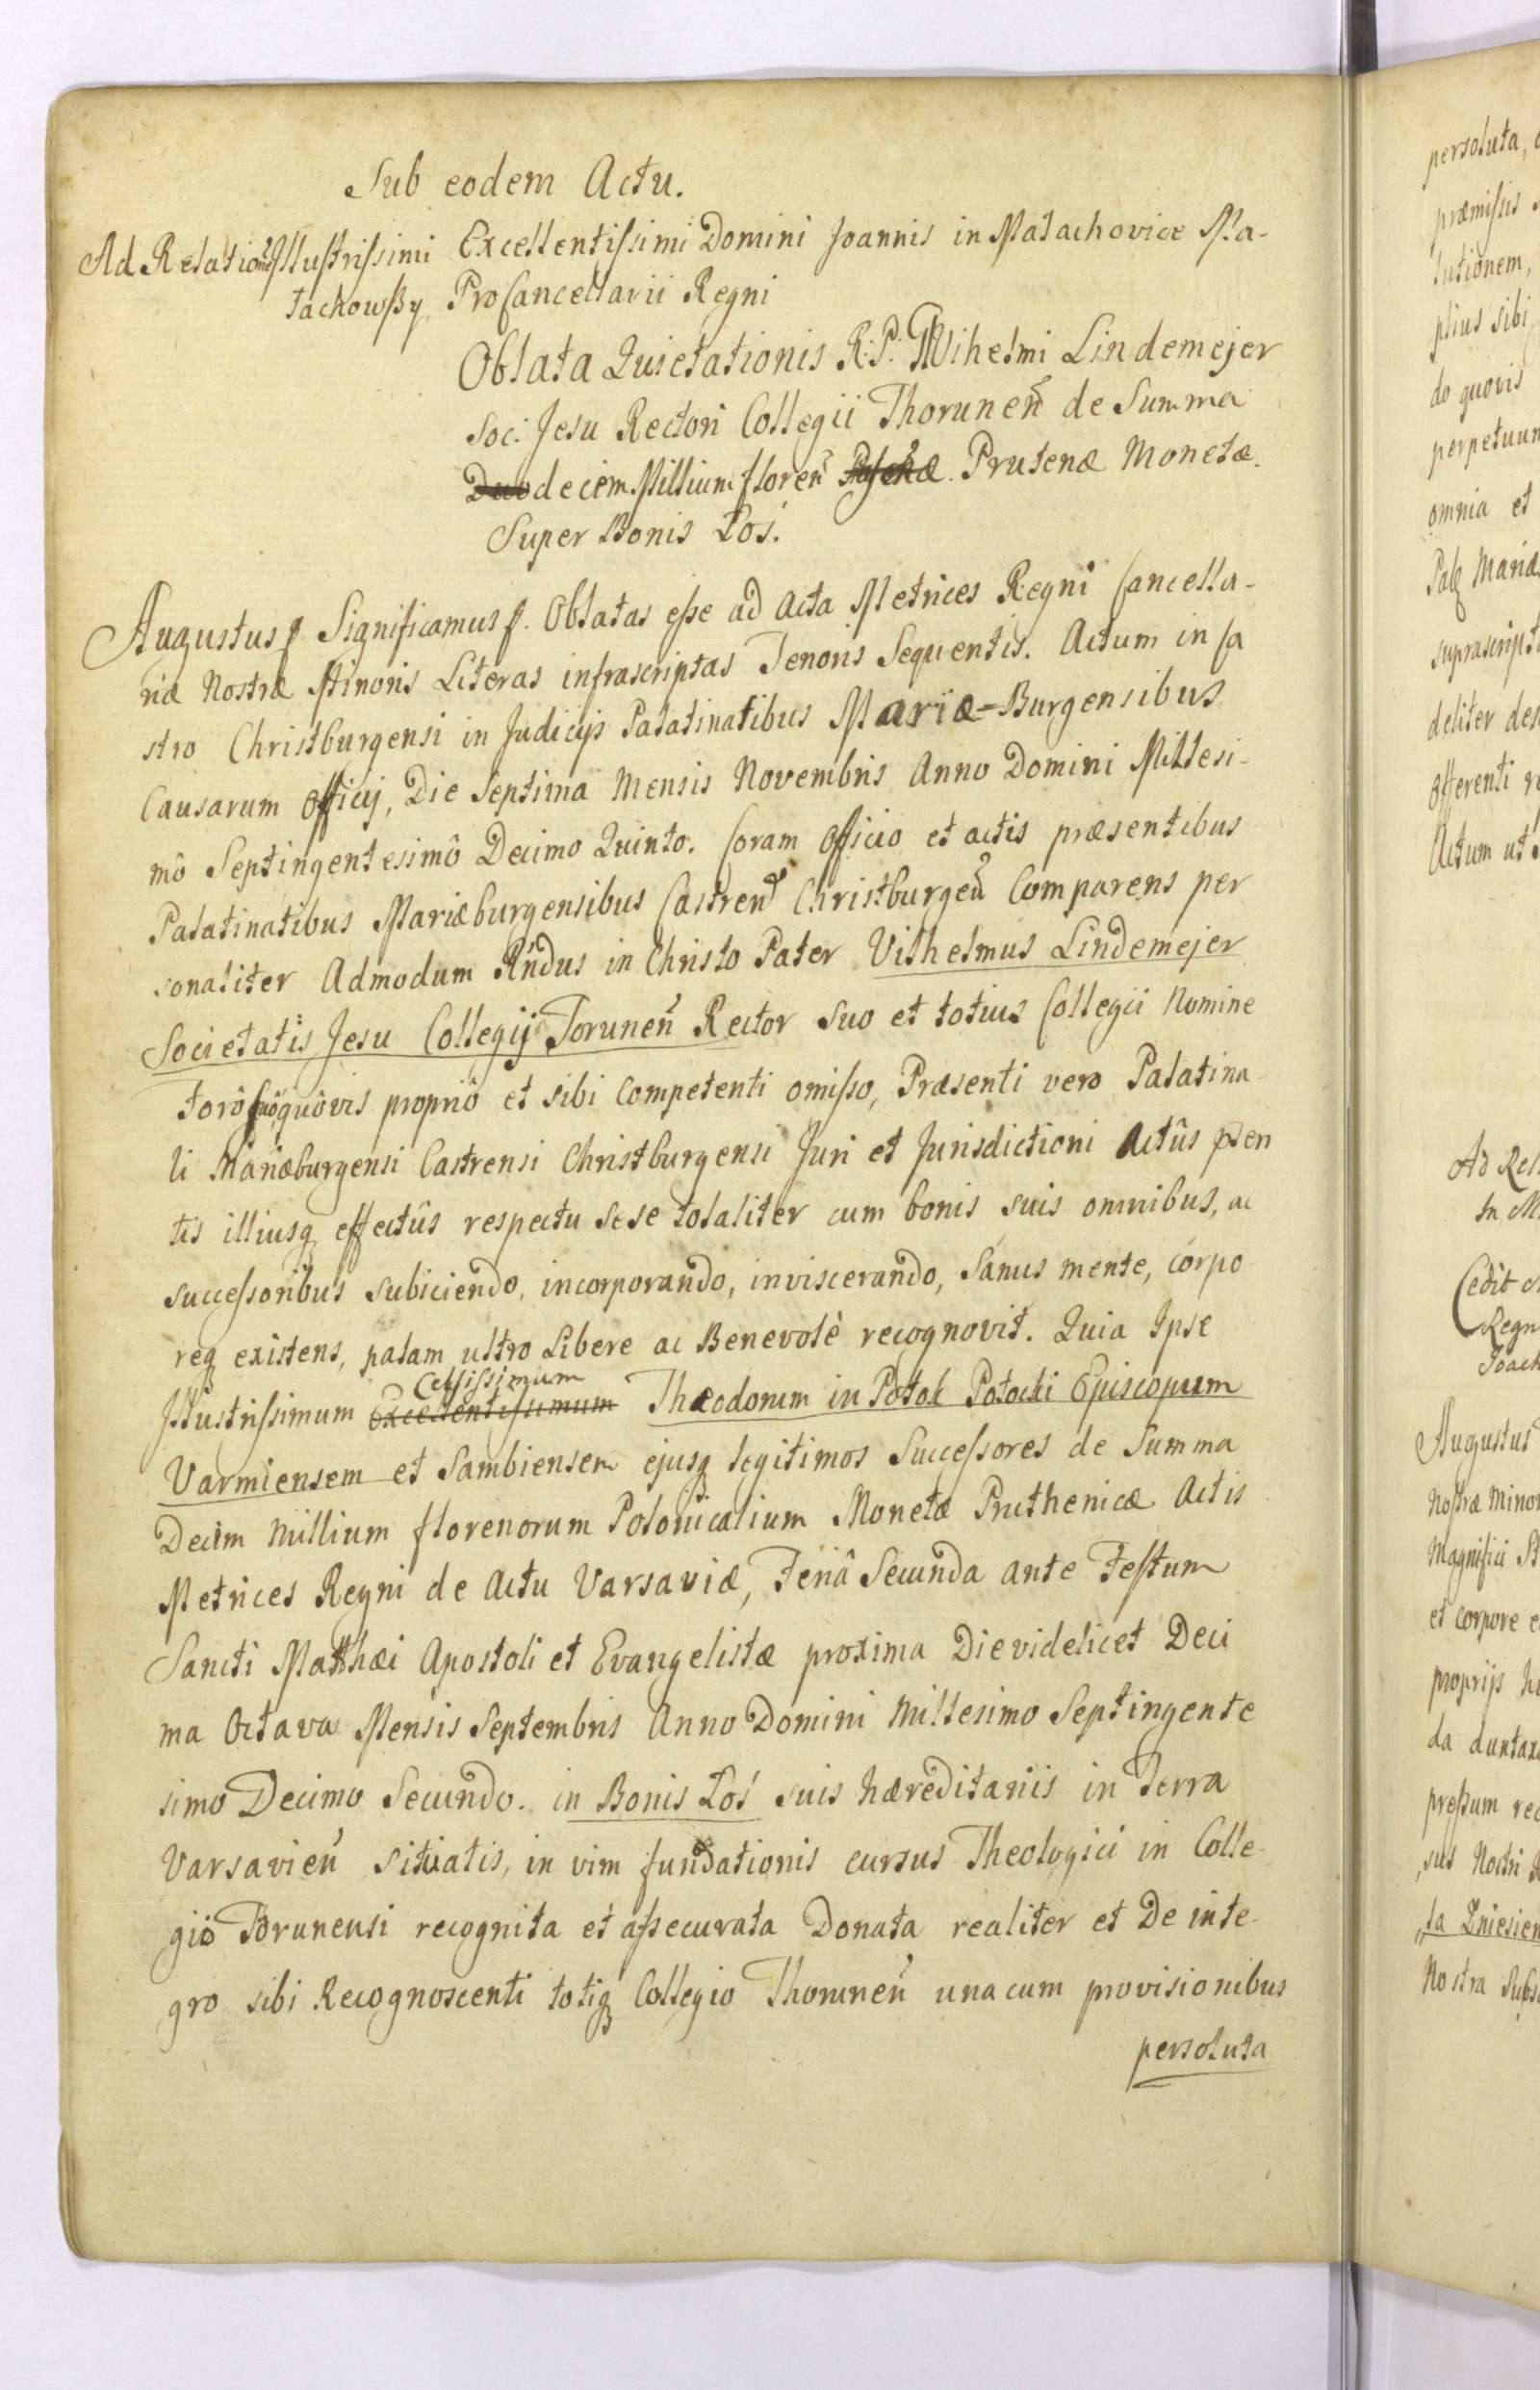 Sub eodem Actu.
Ad Relationē Illustrissimi Excellentissimi Domini Joannis in Małachovice Ma-
łachowsky ProCancellarii Regni
Oblata Quietationis R: P. Wilhelmi Lindemejer
Soc: Jesu Rectori Collegii Thorunen̄ de Summa
Duodecem Millium floren̄ Prutenæ Monetæ.
Super Bonis Łoś.
Augustus Significamus. Oblatas esse ad Acta Metrices Regni Cancella-
riæ Nostræ Minoris Literas infrascriptas Tenoris Sequentis. Actum in Ca
stro Christburgensi in Judicijs Palatinatibus Mariæ-Burgensibus
Causarum Officij, Die Septima Mensis Novembris Anno Domini Millesi-
mô Septingentesimô Decimo Quinto. Coram Officio et actis præsentibus
Palatinatibus Mariæburgensibus Castren̄ Christburgen̄ Comparens per
sonaliter Admodum Rn̄dus in Christo Pater Vilhelmus Lindemejer
Societatis Jesu Collegij Torunen̄ Rector suo et totius Collegii Nomine
forô suô quôvis propriô et sibi Competenti omisso, Præsenti vero Palatina-
li Mariæburgensi Castrensi Christburgensi Juri et Jurisdictioni Actûs pn̄
tis illiusq effectûs respectu sese totaliter cum bonis suis omnibus, ac
successoribus subiciendo, incorporando, inviscerando, Sanus mente, corpo
req existens, palam ultro Libere ac Benevolè recognovit. Quia Ipse
Celsissimum
Illustrissimum Excellentissimum Theodorum in Potok Potocki Episcopum
Varmiensem et Sambiensem ejusq legitimos Successores de Summa
Decim Millium florenorum Polonicalium Monetæ Pruthenicæ Actis
Metrices Regni de Actu Varsaviæ, Feriâ Secunda ante Festum
Sancti Matthæi Apostoli et Evangelistæ proxima Die videlicet Deci
ma Octava Mensis Septembris Anno Domini Millesimo Septingente
simo Decimo Secundo. in Bonis Łoś suis hæreditariis in Terra
Varsavien̄ situatis, in vim fundationis cursus Theologici in Colle-
gio Torunensi recognita et assecurata Donata realiter et De inte-
gro sibi Recognoscenti totiq Collegio Thorunen̄ una cum provisionibus
persoluta
persoluta,
præmissis
lutionem,
plius sibi
do quovis
perpetuum
omnia et
Mariæ
suprascript
deliter des
Offerenti re
Actum ut
Ad Rel
In M
Cedit
Regn
Joach
Augustus
Nostræ Minor
Magnifici St
et corpore e
proprijs
da duntaxa
pressum rec
sus Nostri
ta Zniesien
Nostra Subs